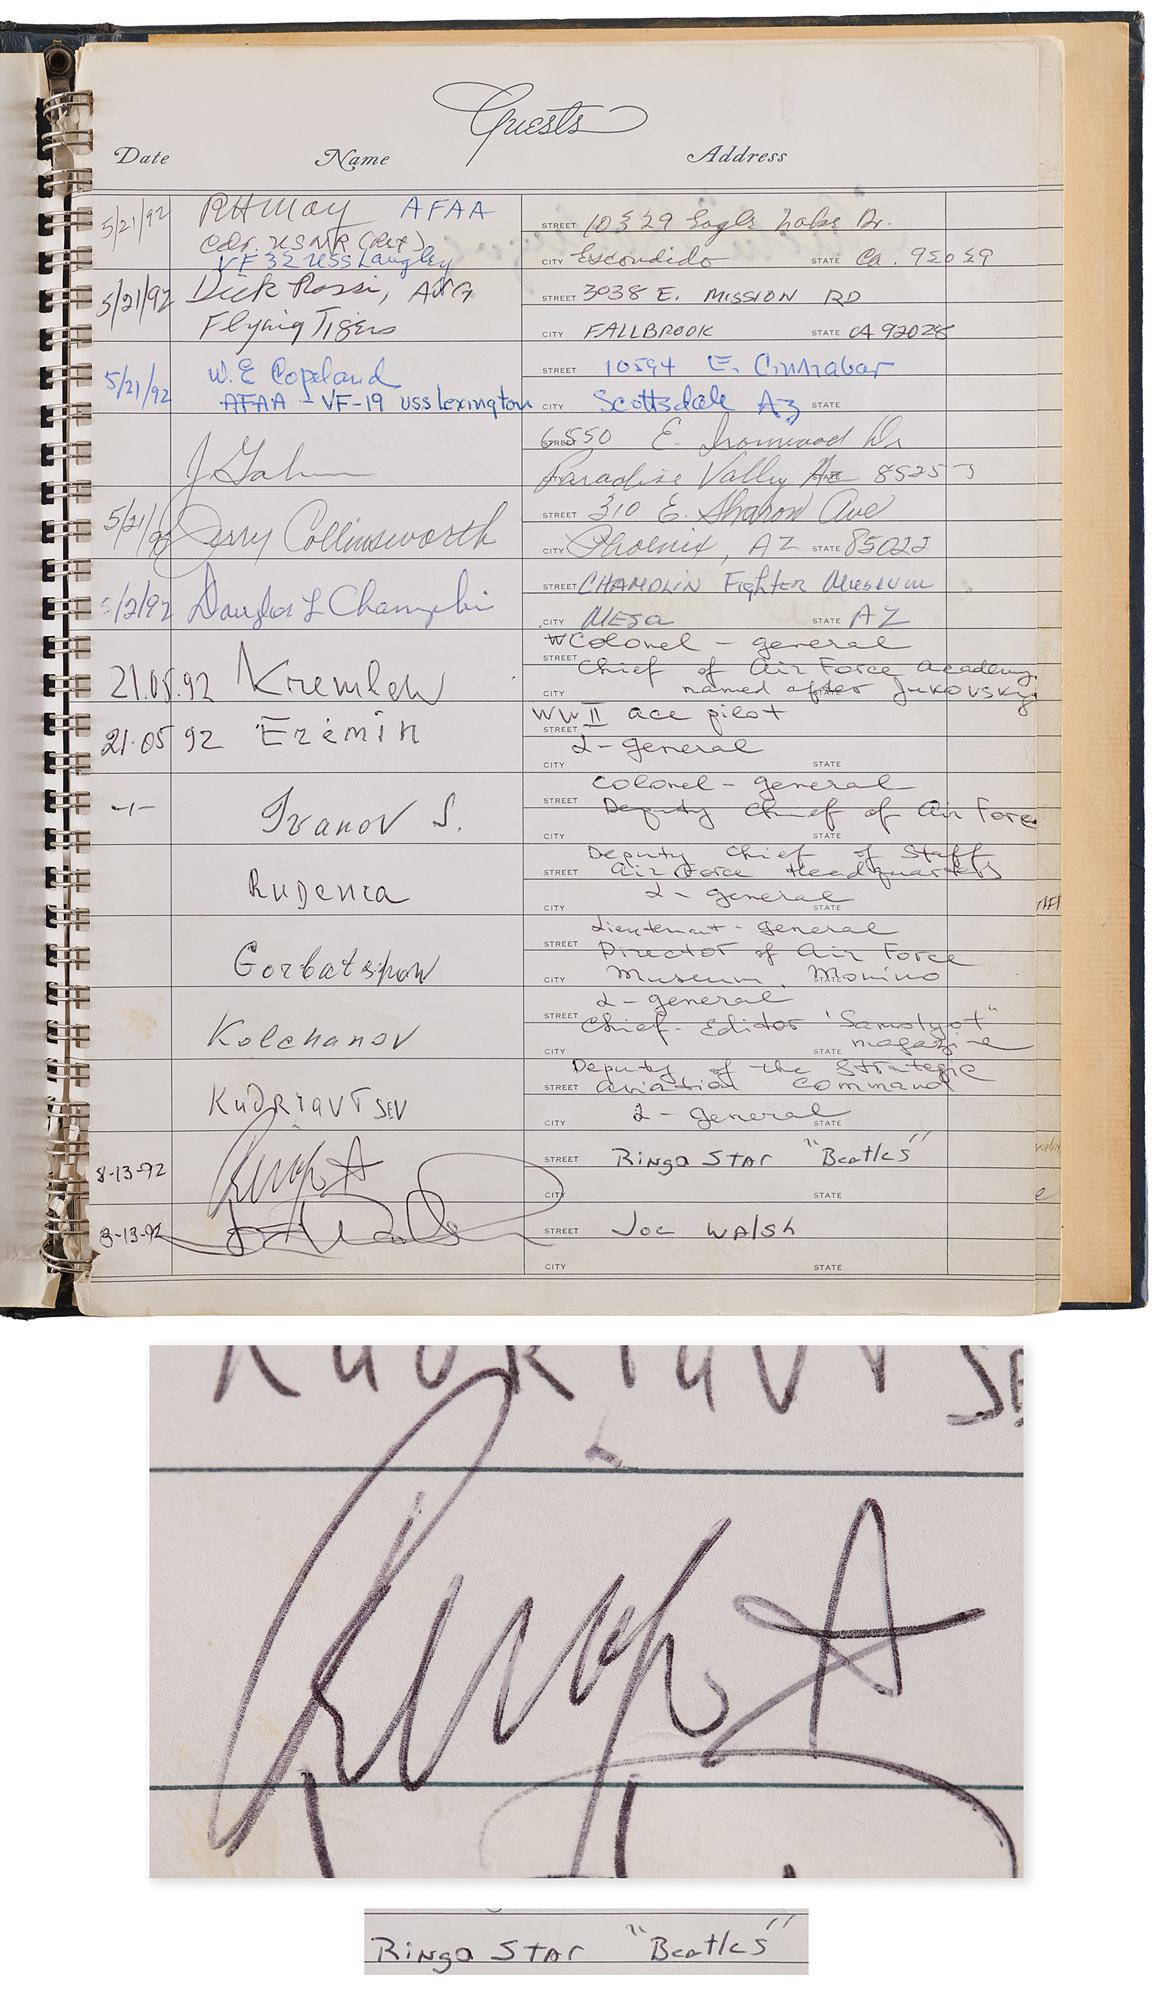 Guests
Date Name Address
5/21/92 RHMay AFAA STREET 10329 Eagle Lake Dr.
Cdr. USNR (Ret)
VF 32 USS Langley CITY Escondido STATE Ca. 92029
5/21/92 Dick Rossi, AVG STREET 3038 E. MISSION RD
Flying Tigers CITY FALLBROOK STATE CA 92028
5/21/92 W.E Copeland STREET 10594 E. Cinnabar
AFAA - VF-19 USS Lexington CITY Scottsdale AZ STATE
STREET 6550 E. Ironwood Dr
Paradise Valley STATE 85253
5/21/92 Jerry Collinsworth STREET 310 E. Sharon Ave
CITY Phoenix, AZ STATE 85022
Douglas L Champlin STREET CHAMPLIN FIGHTER MUSEUM
CITY Mesa STATE AZ
Colonel - general
21.05.92 Kremlev STREET Chief of Air Force Academy
CITY named after Jukovsky
WW II ace pilot
21.05 92 Eremin STREET
L-general
CITY STATE
colonel - general
-"- Ivanov S. STREET Deputy Chief of Air Force
CITY STATE
Deputy Chief of Staff
STREET Air Force Headquarters
Rudenca L-general
CITY STATE
Lieutenant - general
STREET Director of Air Force
CITY Museum, Monino STATE
L-general
STREET Chief-Editor "Samolyot"
Kolchanov CITY STATE magazine
Deputy of the Strategic
STREET aviation command
KudRiavTsev CITY L-general STATE
8-13-92 Ringo STREET Ringo STAR "Beatles"
CITY STATE
8-13-92 STREET Joe WAlsh
CITY STATE
KudRiavTse
Ringo
Ringo STAR "Beatles"